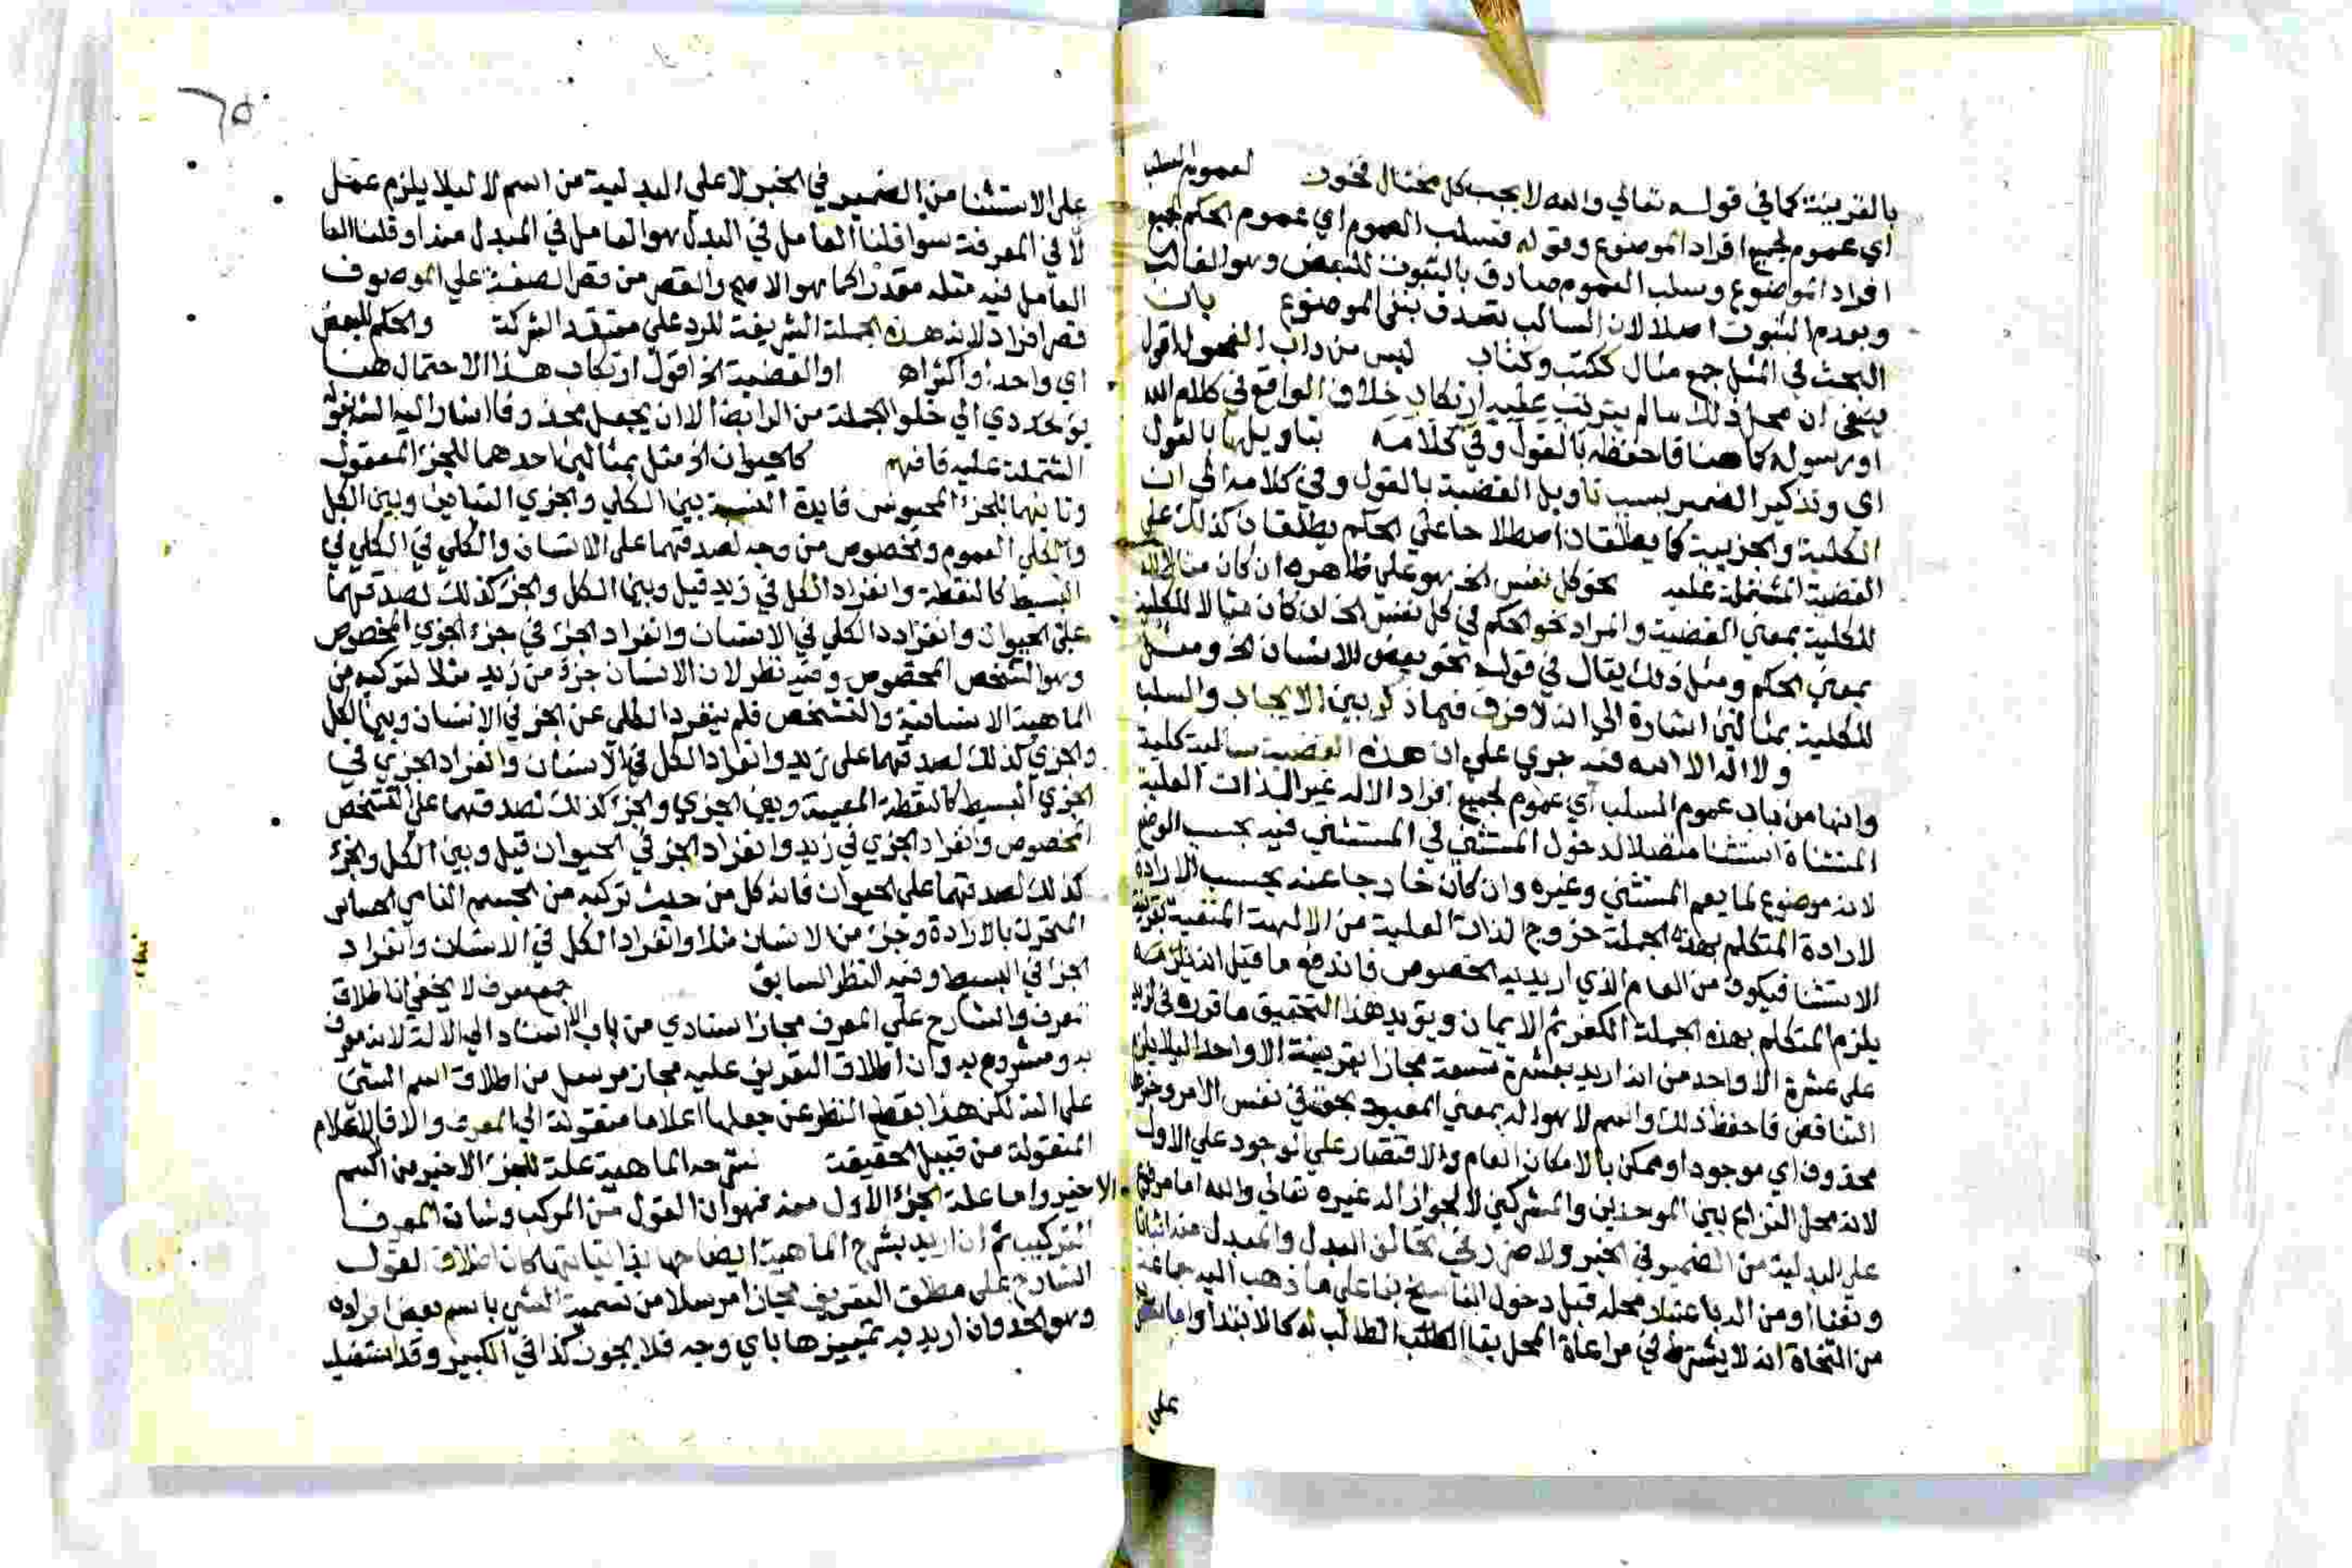 بالقرينة كما في قوله تعالي والله لا يحب كل مختال فخور لعموم السلب
اي عموم لجميع افراد الموضوع وقوله فسلب العموم اي عموم الحكم لجميع
افراد الموضوع وسلب العموم صادق بالثبوت للبعض وهو الغالب
وبعدم الثبوت اصلا لان السالب تصدق بنفي الموضوع بان
البحث في المثل جمع مثال ككتب وكتاب ليس من داب الفحول اقول
ينبغي ان محل ذلك مالم يترتب عليه ارتكاب خلاف الواقع في كلام الله
او رسوله كما هنا فاحفظه بالقول وفي كلامه بتاويلها بالقول
اي وتذكير الضمير بسبب تاويل القضية بالقول وفي كلامه الي ان
الكلية والجزيية كما يطلقان اصطلاحا علي الحكم يطلقان كذلك علي
القضية المشتملة عليه نحو كل نفس الخ هو علي ظاهره ان كان مثالا
للكلية بمعني القضية والمراد نحو الحكم في كل نفس الخ ان كان مثالا للكلية
بمعني الحكم ومثل ذلك يقال في قوله نحو بعض الانسان الخ ومثل
للكلية بمثالين اشارة الي انه لا فرق فيما ذكر بين الايجاب والسلب
ولا اله الا الله فيه جري علي ان هذه القضية سالبة كلية
وانها من باب عموم السلب اي عموم لجميع افراد الاله غير الذات العلية
المستثناة استثنا متصلا لدخول المستثني في المستثني فيه بحسب الوضع
لانه موضوع لما يعم المستثني وغيره وان كان خارجا عنه بحسب الارادة
لارادة المتكلم بهذه الجملة خروج الذات العلية من الالهة المنفية بقرينة
الاستثنا فيكون من العام الذي اريد به الخصوص فاندفع ما قيل انه
يلزم المتكلم بهذه الجملة الكفر ثم الايمان ويويد هذا التحقيق ما قرره في له
علي عشرة الا واحد من انه اريد بعشرة تسعة مجازا بقرينة الا واحد ليلا يلزم
التناقض فاحفظ ذلك واسم لا هو اله بمعني المعبود بحق في نفس الامر وخبرها
محذوف اي موجود او ممكن بالامكان العام والاقتصار علي الوجود علي الاول
لانه محل النزاع بين الموحدين والمشركين لا لجواز اله غيره تعالي والله اما مرفوع
علي البدلية من الضمير في الخبر ولا ضرر في تخالف البدل والمبدل منه اثباتا
ونفيا او من اله باعتبار محله قبل دخول الناسخ بنا علي ما ذهب اليه جماعة
من النحاة انه لا يشترط في مراعاة المحل بقا الطالب له كالابتدا واما
علي
٦٥
علي الاستثنا من الضمير في الخبر لا علي البدلية من اسم لا ليلا يلزم عمل
لا في المعرفة سوا قلنا العامل في البدل هو العامل في المبدل منه او قلنا العا
العامل فيه مثله مقدرا كما هو الاصح والقصر من قصر الصفة علي الموصوف
قصر افراد لان هذه الجملة الشريفة للرد علي معتقد الشركة والحكم للبعض
اي واحدا او اكثر اه او القضية الخ اقول ارتكاب هذا الاحتمال هنا
يودي الي خلو الجملة من الرابط الا ان يجعل محذوفا اشار اليه الش بقوله
المشتملة عليه فافهم كالحيوان الخ مثل بمثالين احدهما للجزء المعقول
وثانيهما للجزء المحسوس فايدة النسبة بين الكلي والجزي التباين وبين الكل
والكلي العموم والخصوص من وجه لصدقهما علي الانسان والكلي في الكلي في
البسيط كالنقطة وانفراد الكل في زيد قيل وبين الكل والجزء كذلك لصدقهما
علي الحيوان وانفراد الكلي في الانسان وانفراد الجزء في جزء الجزي المخصوص
وهو التشخص المخصوص وفيه نظر لان الانسان جزء من زيد مثلا لتركبه من
الماهية الانسانية والتشخص فلم ينفرد الكلي عن الجزء في الانسان وبين الكل
والجزي كذلك لصدقهما علي زيد وانفراد الكل في الانسان وانفراد الجزي في
الجزي البسيط كالنقطة المعينة وبين الجزي والجزء كذلك لصدقهما علي التشخص
المخصوص وانفراد الجزي في زيد وانفراد الجزء في الحيوان قيل وبين الكل والجزء
كذلك لصدقهما علي الحيوان فانه كل من حيث تركبه من الجسم النامي الحساس
المتحرك بالارادة وجزء من الانسان مثلا وانفراد الكل في الانسان وانفراد
الجزء في البسيط وفيه النظر السابق جمع معرف لا يخفي ان اطلاق
المعرف والشارح علي المعرف مجاز اسنادي من باب الاسناد الي الالة لانه معرف
به ومشروح به وان اطلاق التعريف عليه مجاز مرسل من اطلاق اسم الشي
علي الته لكن هذا بقطع النظر عن جعلها اعلاما منقولة الي المعرف والا فالاعلام
المنقولة من قبيل الحقيقة شرحه الماهية علة للجزء الاخير من الاسم
الاخير واما علة الجزء الاول منه فهو ان القول من المركب وشان المعرف
التركيب ثم ان اريد بشرح الماهية ايضاحها بذاتياتها كان اطلاق القول
الشارح علي مطلق التعريف مجازا مرسلا من تسمية الشي باسم بعض افراده
وهو الحد وان اريد به تمييزها باي وجه فلا يجوز كذا في الكبير وقد